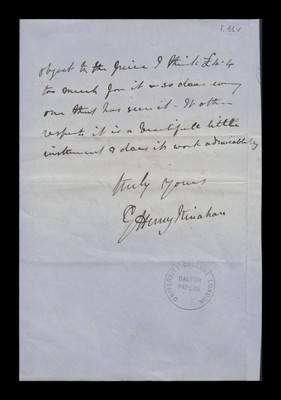 f. 55v
object to the price I think £4-4
too much for it & so does every
one that has seen it - In other
respects it is a beautiful little
instrument & does its work admirably
truly yours
G Henry Kinahan
UNIVERSITY COLLEGE LONDON
GALTON
PAPERS